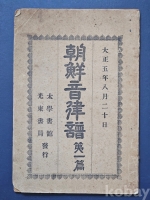 大正五年八月二十日
朝鮮音律譜 第一篇
太學書館
光東書局 發行
kobay